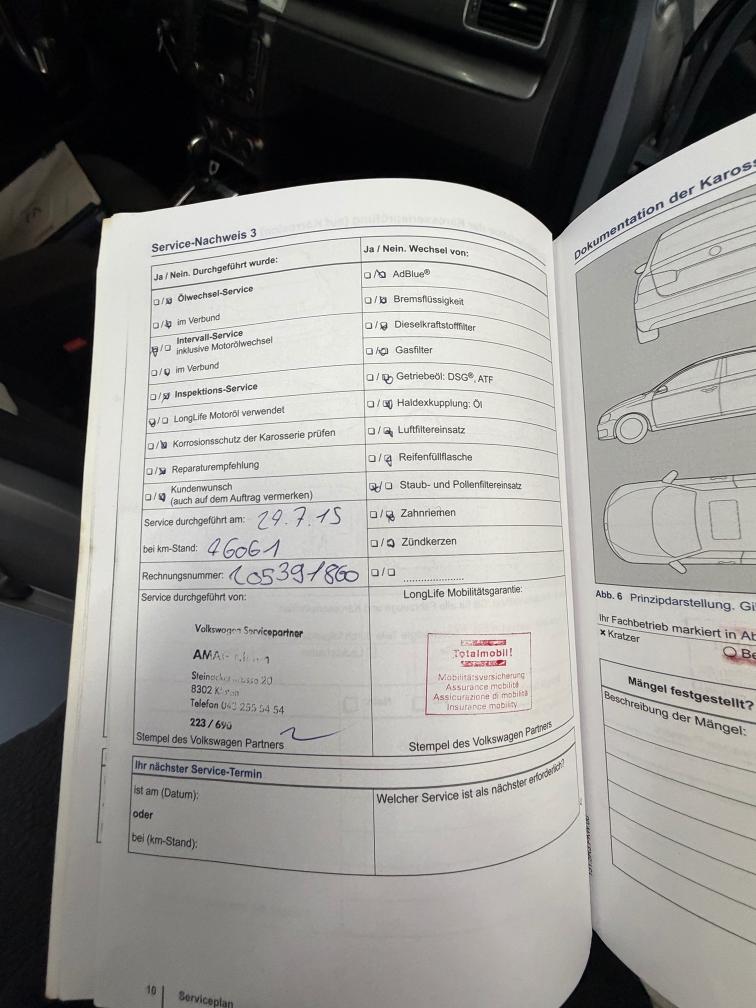 Service-Nachweis 3
Ja / Nein. Durchgeführt wurde:
Ölwechsel-Service
im Verbund
Intervall-Service
inklusive Motorölwechsel
im Verbund
Inspektions-Service
LongLife Motoröl verwendet
Korrosionsschutz der Karosserie prüfen
Reparaturempfehlung
Kundenwunsch
(auch auf dem Auftrag vermerken)
Service durchgeführt am: 29.7.15
bei km-Stand: 46061
Rechnungsnummer: 205391860
Ja / Nein. Wechsel von:
AdBlue®
Bremsflüssigkeit
Dieselkraftstofffilter
Gasfilter
Getriebeöl: DSG®, ATF
Haldexkupplung: Öl
Luftfiltereinsatz
Reifenfüllflasche
Staub- und Pollenfiltereinsatz
Zahnriemen
Zündkerzen
Service durchgeführt von:
Volkswagen Servicepartner
8302
Telefon
223 / 690
Stempel des Volkswagen Partners
LongLife Mobilitätsgarantie:
Totalmobil!
Mobilitätsversicherung
Assurance mobilité
Assicurazione di mobilità
Insurance mobility
Stempel des Volkswagen Partners
Ihr nächster Service-Termin
ist am (Datum):
oder
bei (km-Stand):
Welcher Service ist als nächster erforderlich?
10 | Serviceplan
Dokumentation der Kaross
Abb. 6 Prinzipdarstellung. Gi
Ihr Fachbetrieb markiert in Ab
× Kratzer
Be
Mängel festgestellt?
Beschreibung der Mängel: